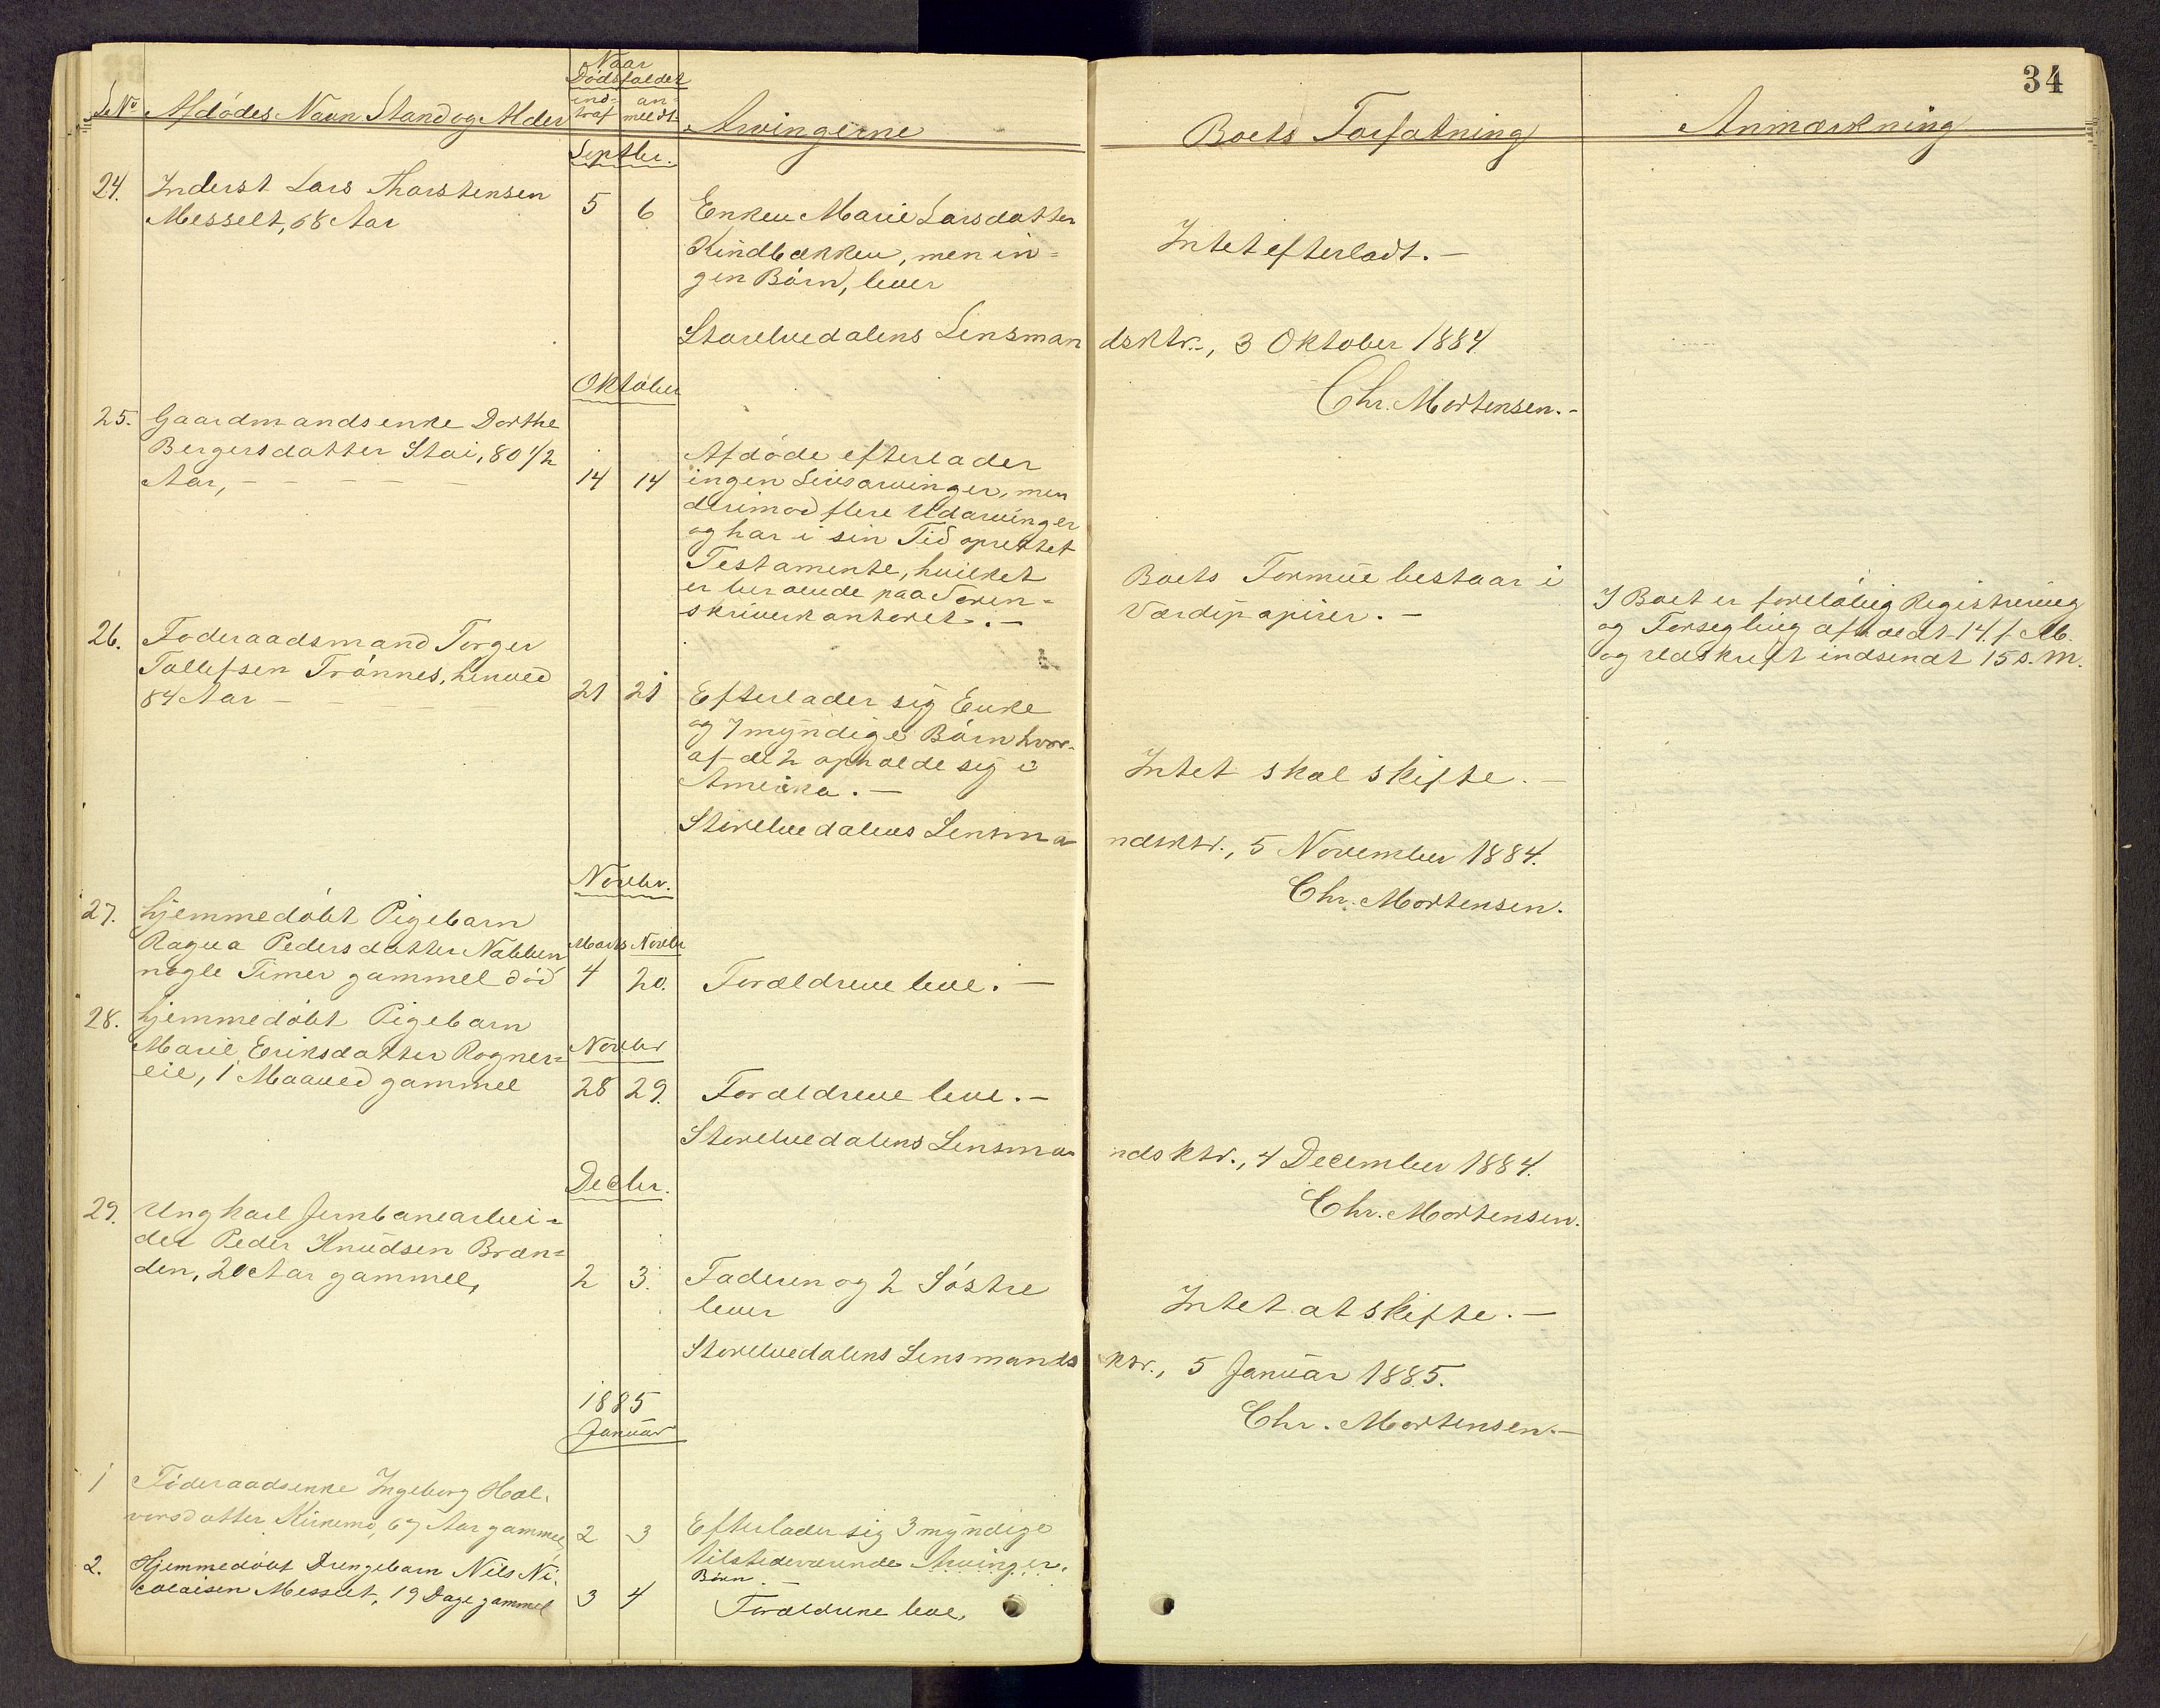 34
Naar
Dødsfaldet
LNo Afdødes Navn Stand og Alder ind- an-
traf meldt Arvingerne Boets Forfatning Anmærkning
Septbr.
24. Inderst Lars Thorstensen
Messelt, 68 Aar 5 6 Enken Marie Larsdatter
Kindbækken, men in-
gen Børn, lever Intet efterladt. -
Storelvedalens Lensmandsktr., 3 Oktober 1884
Chr. Mortensen. -
Oktober
25. Gaardmandsenke Dorthe
Bergersdatter Stai, 80 1/2
Aar, - - - - - 14 14 Afdøde efterlader
ingen Livsarvinger, men
derimod flere Udarvinger
og har i sin Tid oprettet
Testamente, hvilket
er beroende paa Soren-
skriverkontoret. -
Boets Formue bestaar i
Værdipapirer. -
I Boet er foreløbig Registrering
og Forsegling afholdt 14. f. M.
og Udskrift indsendt 15 s. M.
26. Føderaadsmand Torger
Tollefsen Trønnes, henved
84 Aar - - - - - 21 21 Efterlader sig Enke
og 7 myndige Børn hvor-
af de 2 opholde sig i
Amerika. -
Intet skal skifte. -
Storelvedalens Lensmandsktr., 5 November 1884.
Chr. Mortensen.
Novbr.
27. Hjemmedøbt Pigebarn
Ragna Pedersdatter Nabben Marts Novbr
nogle Timer gammel død 4 20. Forældrene leve. -
28. Hjemmedøbt Pigebarn
Marie Eriksdatter Rogner- Novbr
eie, 1 Maaned gammel 28 29. Forældrene leve. -
Storelvedalens Lensmandsktr., 4 December 1884.
Chr. Mortensen.
Decbr.
29. Ungkarl Jernbanearbei-
der Peder Knudsen Bræn-
den, 20 Aar gammel, 2 3. Faderen og 2 Søstre
lever Intet at skifte. -
Storelvedalens Lensmandsktr., 5 Januar 1885.
Chr. Mortensen. -
1885
Januar
1 Føderaadsenke Ingeborg Hal-
vorsdatter Kirkemo, 67 Aar gammel, 2 3 Efterlader sig 3 myndige
tilstedeværende Arvinger.
Børn -
2. Hjemmedøbt Drengebarn Nils Ni-
colaisen Messelt, 19 Dage gammel 3 4 Forældrene leve,